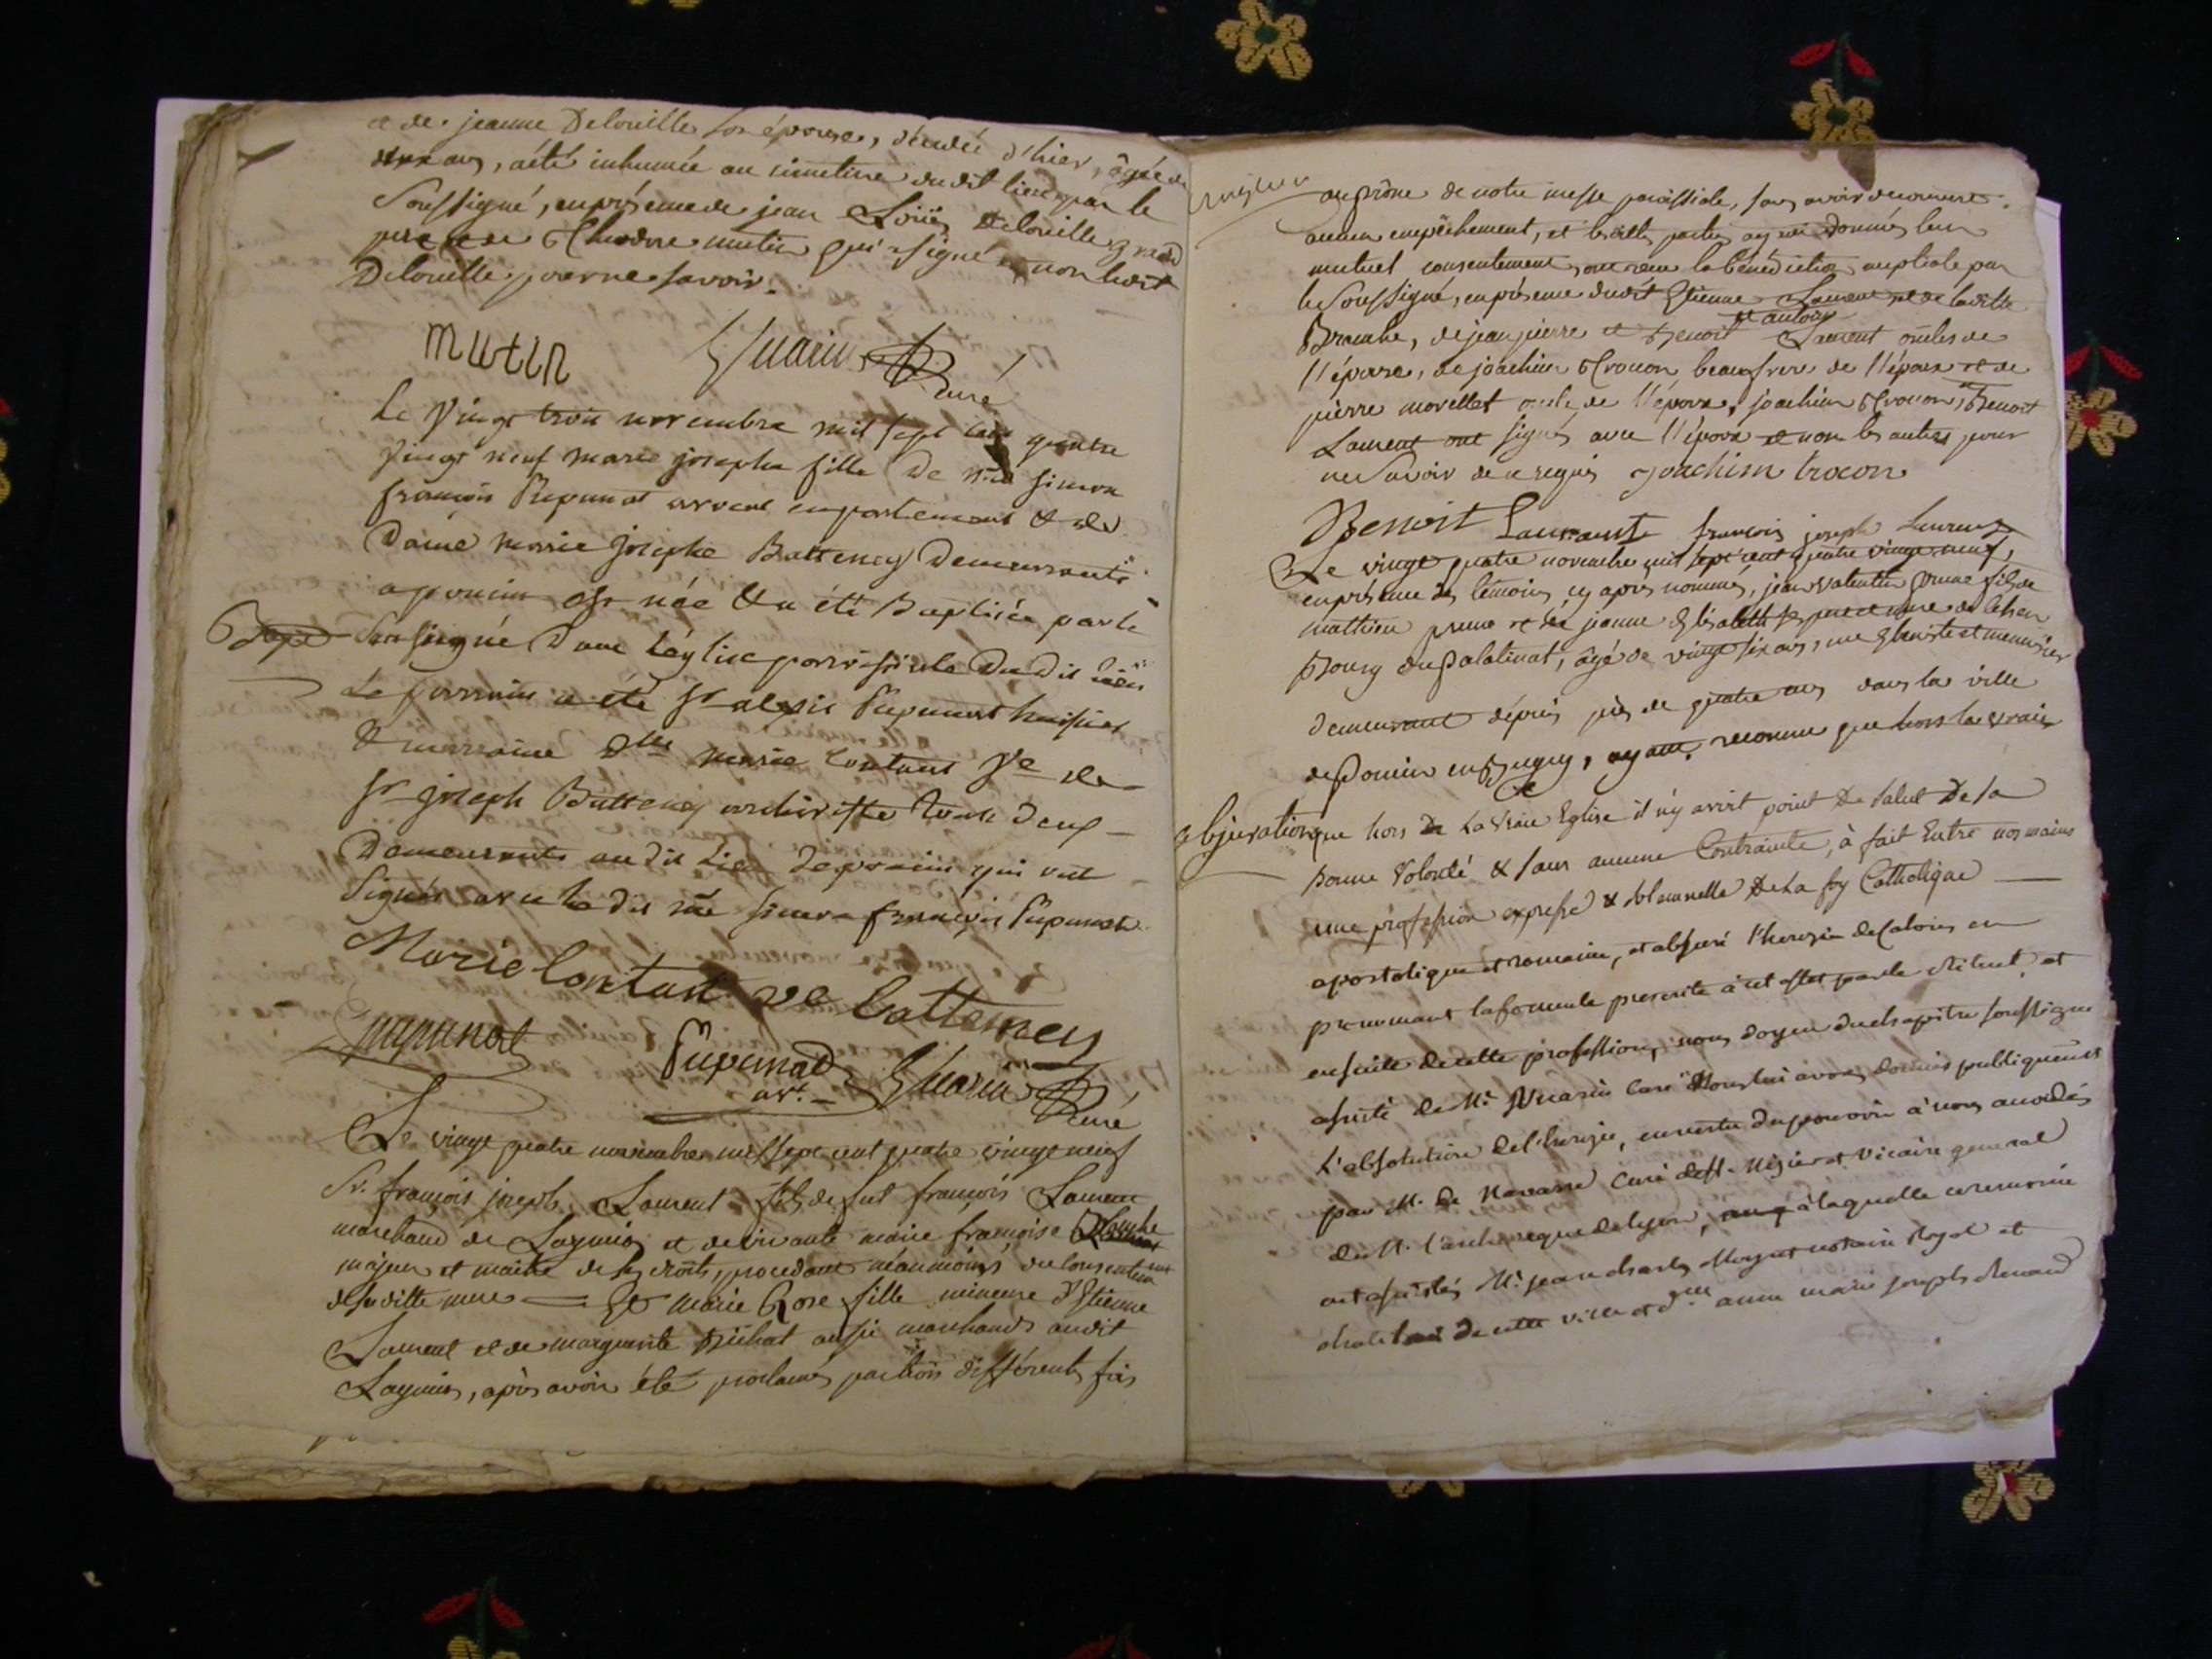 et de jeanne Delouille son épouse, décédée d'hier, âgée de
deux ans, a été inhumée au cimetiere dudit lieu par le
Soussigné, en présence de jean Loüis Delouille grand
pere et de Theodore mutin qui a signé et non ledit
Delouille pour ne savoir.
mutin Guarin Curé
Le vingt trois novembre mil sept cent quatre
vingt neuf marie josephe fille de me simon
françois Pupunat avocat en parlement & de
Dame marie josephe Batteney Demeurants
a poncin est née & a été Baptisée par le
Bapt. Soussigné Dans l'église parroissiale Dudit lieu
Le parrain a été sr alexis Pupunat huissier
& marraine Dlle marie Contant Ve de
sr joseph Batteney archiviste tous deux
Demeurants audit Lieu de poncin qui ont
Signés avec le dit me simon françois Pupunat
Marie Contant ve batteney
pupunat Pupunat avt. Guarin Curé
Le vingt quatre novembre mil sept cent quatre vingt neuf
Sr. françois joseph Laurent fils de feu françois Laurent
marchand de Leymia et de vivante marie françoise Branche
majeur et maitre de ses droits, procedant néanmoins du consentement
de saditte mere = Et marie Rose fille mineure d'Etienne
Laurent et de marguerite Bichat aussi marchands audit
Leymia, après avoir été proclamés par trois différentes fois
au prône de notre messe paroissiale, sans avoir decouvert
aucun empêchement, et lesdittes parties ayant donnés leur
mutuel consentement, ont reçu la bénédiction nuptiale par
le Soussigné, en présence dudit Etienne Laurent et de laditte
Branche, de jean pierre et Benoit et antoine Laurent oncles de
l'épouse, de joachim Trocon beaufrere de l'époux et de
pierre morellet oncle de l'époux, joachim Trocon, et Benoit
Laurent ont signés avec l'époux et non les autres pour
ne savoir de ce requis joachim trocon
Benoit Laurant françois joseph Laurent
Le vingt quatre novembre mil sept cent quatre vingt neuf,
en présence des temoins cy après nommés, jean valentin prune fils de
mathieu prune et de jeanne Elisabeth ses pere et mere de
Bourg du Palatinat, âgé de vingt six ans, me Ebeniste et menuisier
demeurant dépuis près de quatre ans dans la ville
de Poncin en Bugey, ayant reconnu que hors la vraie
abjuration que hors de La vraie Eglise il n'y avoit point De salut De sa
Bonne volonté & sans aucune Contrainte, à fait Entre nos mains
une profession expresse & solemnelle De La foy Catholique
apostolique et romaine, et abjuré l'heresie de Calvin en
prononcant la formule prescrite à cet effet par le rituel, et
ensuite de cette profession, nous doyen du chapitre soussigné
assisté de Mr. Guarin Curé Nous lui avons données publiquement
L'absolution de l'heresie, en vertu du pouvoir à nous accordés
par M. de Navarre Curé de St. Nizier et Vicaire general
de M. l'archeveque de Lyon, à laquelle ceremonie
ont assistés Mr. jean charles Moyret notaire Royal et
chatelain de cette ville et dlle anne marie joseph Renaud